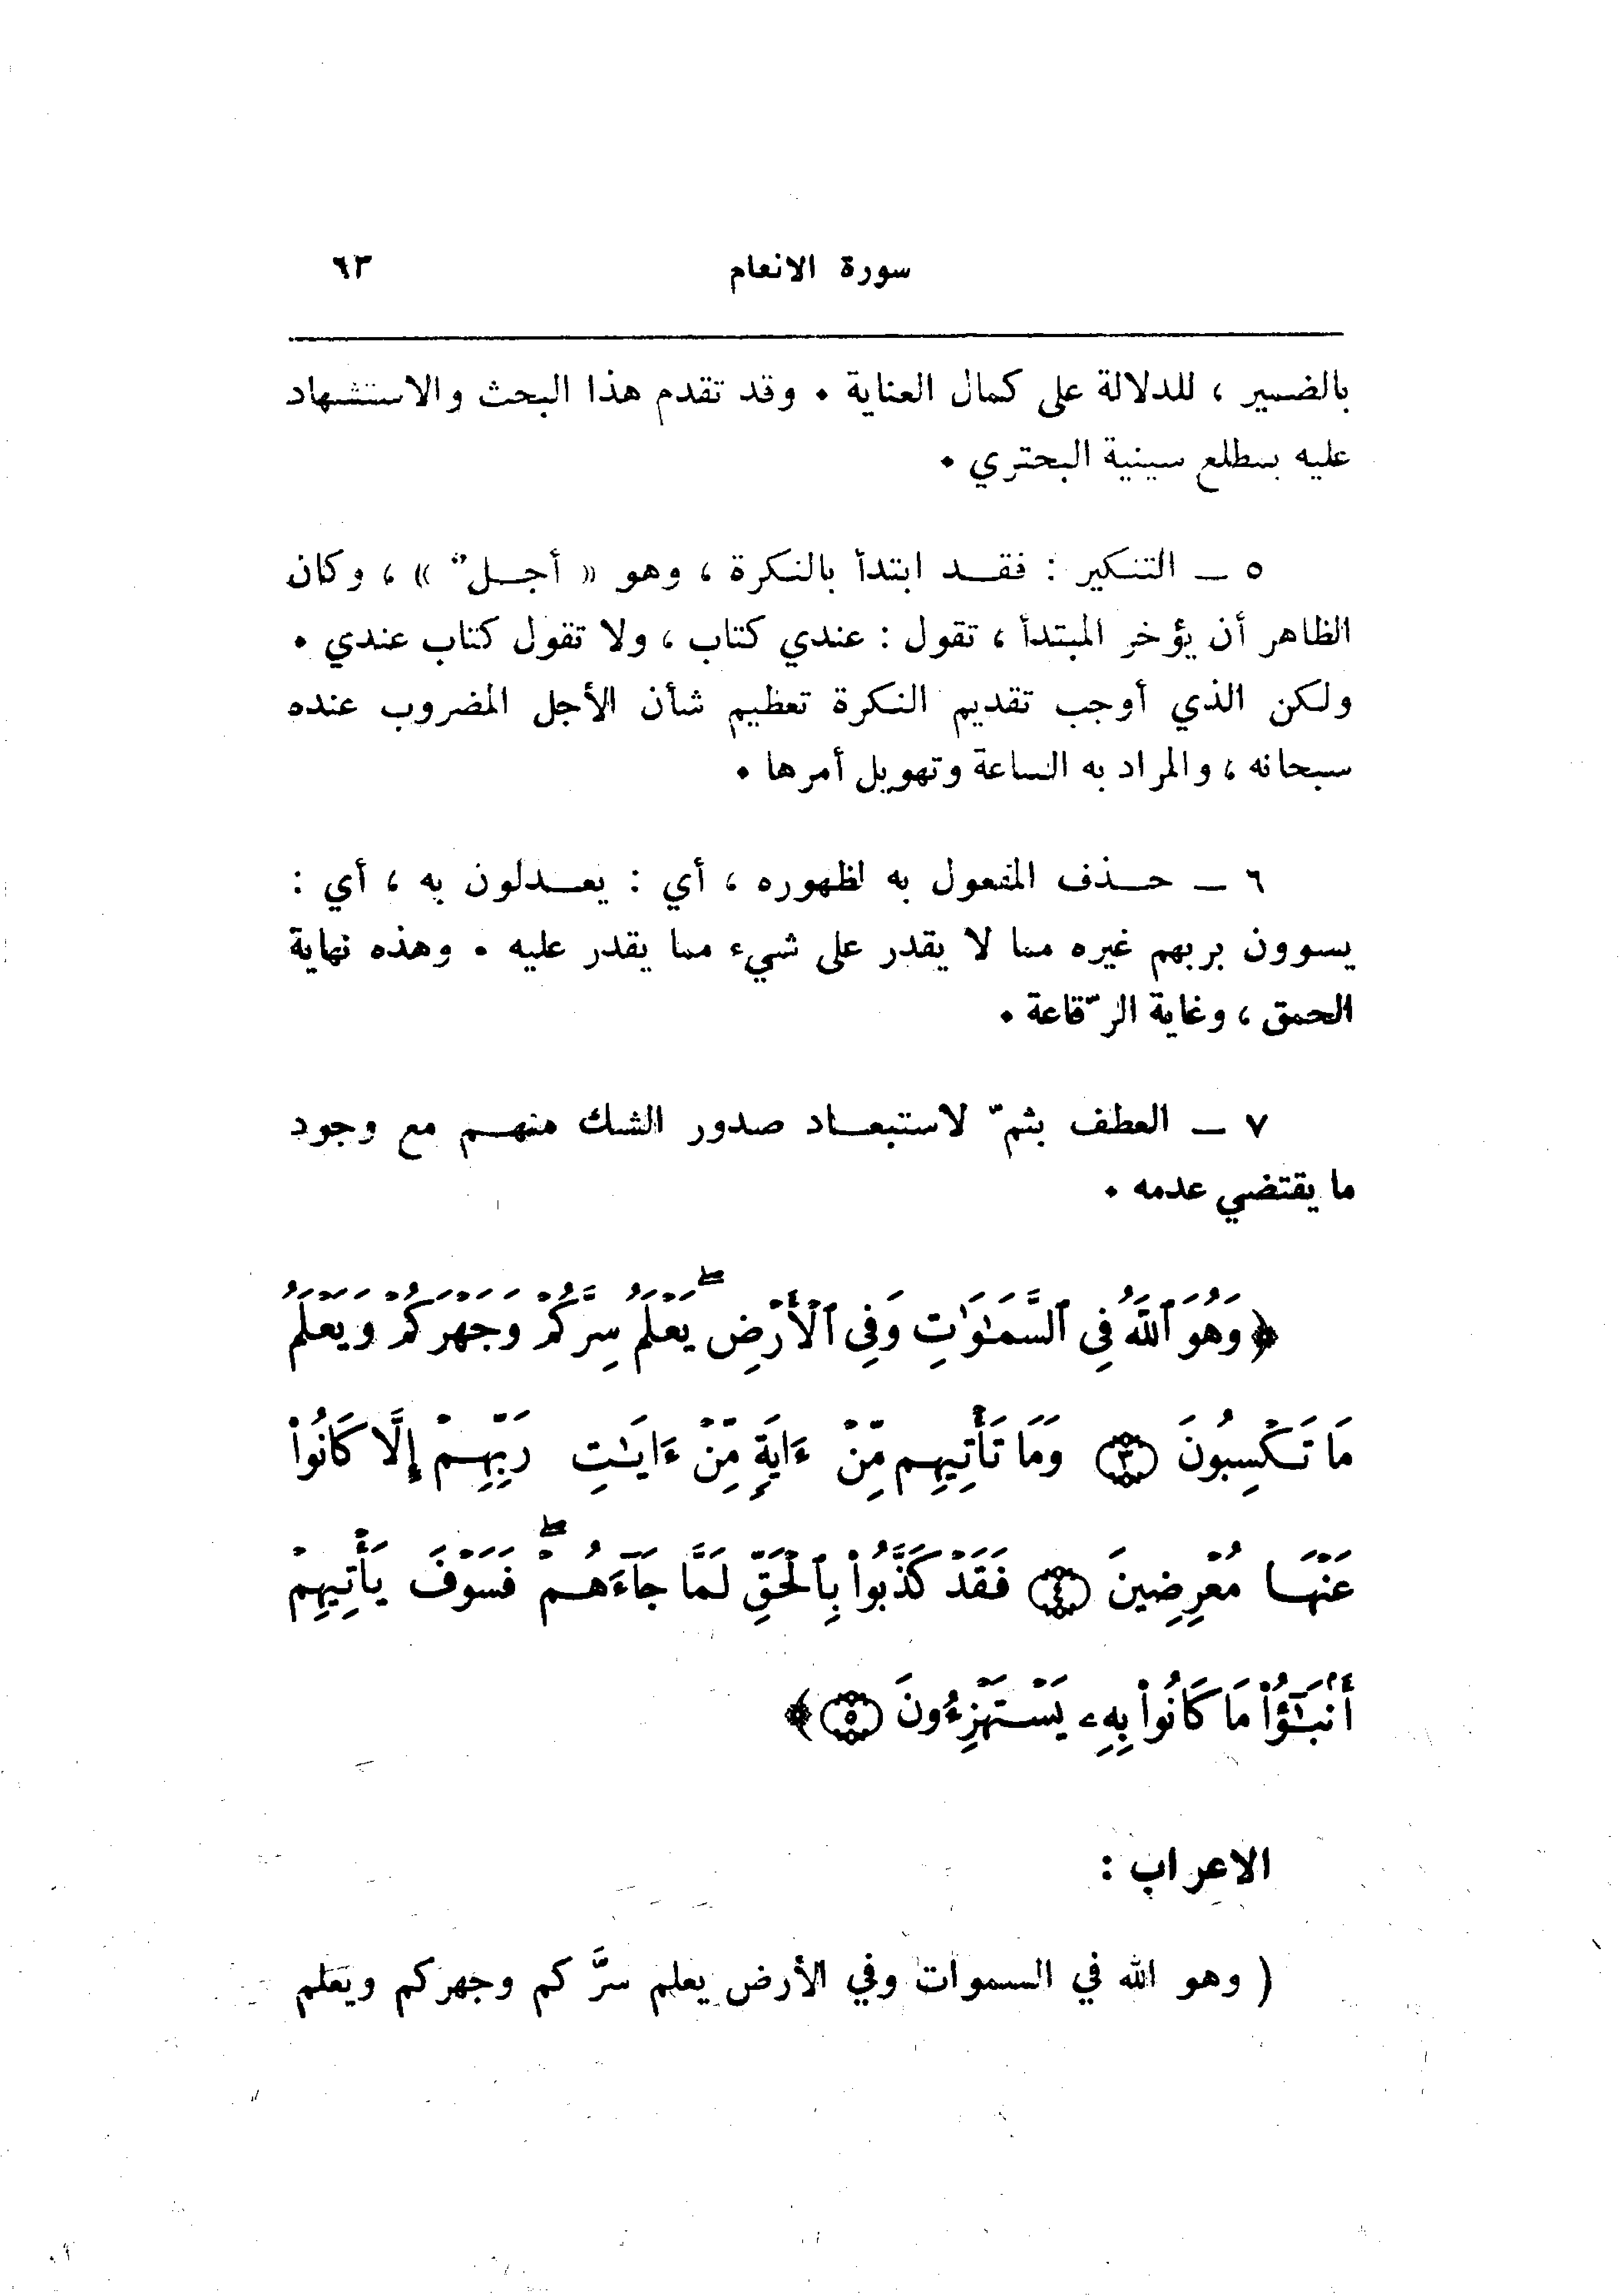 سورة الانعام ٦٣
بالضمير ، للدلالة على كمال العناية • وقد تقدم هذا البحث والاستشهاد
عليه بمطلع سينية البحتري •
٥ ــ التنكير : فقــد ابتدأ بالنكرة ، وهو « أجــلٌ » ، وكان
الظاهر أن يؤخر المبتدأ ، تقول : عندي كتاب ، ولا تقول كتاب عندي •
ولكن الذي أوجب تقديم النكرة تعظيم شأن الأجل المضروب عنده
سبحانه ، والمراد به الساعة وتهويل أمرها •
٦ ــ حــذف المفعول به لظهوره ، أي : يعــدلون به ، أي :
يسوون بربهم غيره مما لا يقدر على شيء مما يقدر عليه • وهذه نهاية
الحمق ، وغاية الرّقاعة •
٧ ــ العطف بثمّ لاستبعــاد صدور الشك منهــم مع وجود
ما يقتضي عدمه •
﴿ وَهُوَ ٱللَّهُ فِى ٱلسَّمَٰوَٰتِ وَفِى ٱلْأَرْضِ ۖ يَعْلَمُ سِرَّكُمْ وَجَهْرَكُمْ وَيَعْلَمُ
مَا تَكْسِبُونَ ﴿٣﴾ وَمَا تَأْتِيهِم مِّنْ ءَايَةٍ مِّنْ ءَايَٰتِ رَبِّهِمْ إِلَّا كَانُوا۟
عَنْهَا مُعْرِضِينَ ﴿٤﴾ فَقَدْ كَذَّبُوا۟ بِٱلْحَقِّ لَمَّا جَآءَهُمْ ۖ فَسَوْفَ يَأْتِيهِمْ
أَنۢبَٰٓؤُا۟ مَا كَانُوا۟ بِهِۦ يَسْتَهْزِءُونَ ﴿٥﴾ ﴾
الاعراب :
( وهو الله في السموات وفي الأرض يعلم سرَّكم وجهركم ويعلم